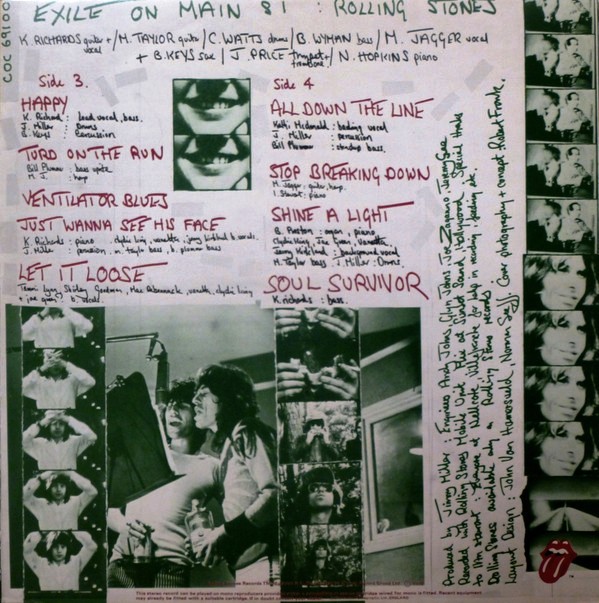 EXILE ON MAIN ST : ROLLING STONES
COC 69100
K. RICHARDS guitar + vocal / M. TAYLOR guitar / C. WATTS drums / B. WYMAN bass / M. JAGGER vocal
+ B. KEYS sax / J. PRICE trumpet + trombone / N. HOPKINS piano
Side 3.
HAPPY
K. Richard : lead vocal, bass.
J. Miller : Drums.
B. Keys : percussion
TURD ON THE RUN
Bill Plummer : bass upright
M. J. : harp
VENTILATOR BLUES
JUST WANNA SEE HIS FACE
K. Richards : piano clydie king, vanetta, jerry kirkland b. vocals.
J. Miller : percussion m. taylor bass, b. plummer bass
LET IT LOOSE
Tami Lynn, Shirley Goodman, Mac Rebennack, vanetta, clydie king
+ joe green : b. vocals.
Side 4
ALL DOWN THE LINE
Kathi Mcdonald : backing vocal
J. Miller : percussion
Bill Plummer : standup bass.
STOP BREAKING DOWN
M. Jagger : guitar, harp.
I. Stewart : piano
SHINE A LIGHT
B. Preston : organ, piano
Clydie King, Joe Green, Vanetta,
Jerry Kirkland : background vocal
M. Taylor bass J. Miller : Drums.
SOUL SURVIVOR
K. richards : bass.
Produced by Jimmy Miller : Engineers Andy Johns, Glyn Johns, Joe Zagarino, Jeremy Gee
Recorded with Rolling Stones Mobile Unit Mixed at Sunset Sound, Hollywood. Special thanks
to Ian Stewart : Everyone at Nellcote, Villefranche for help in recording, feeding etc.
Rolling Stones available only on Rolling Stones records
Layout Design : John Van Hamersveld, Norman Seeff Cover photography + concept Robert Frank.
This stereo record can be played on mono reproducers provided
may already be fitted with a suitable cartridge. If in doubt